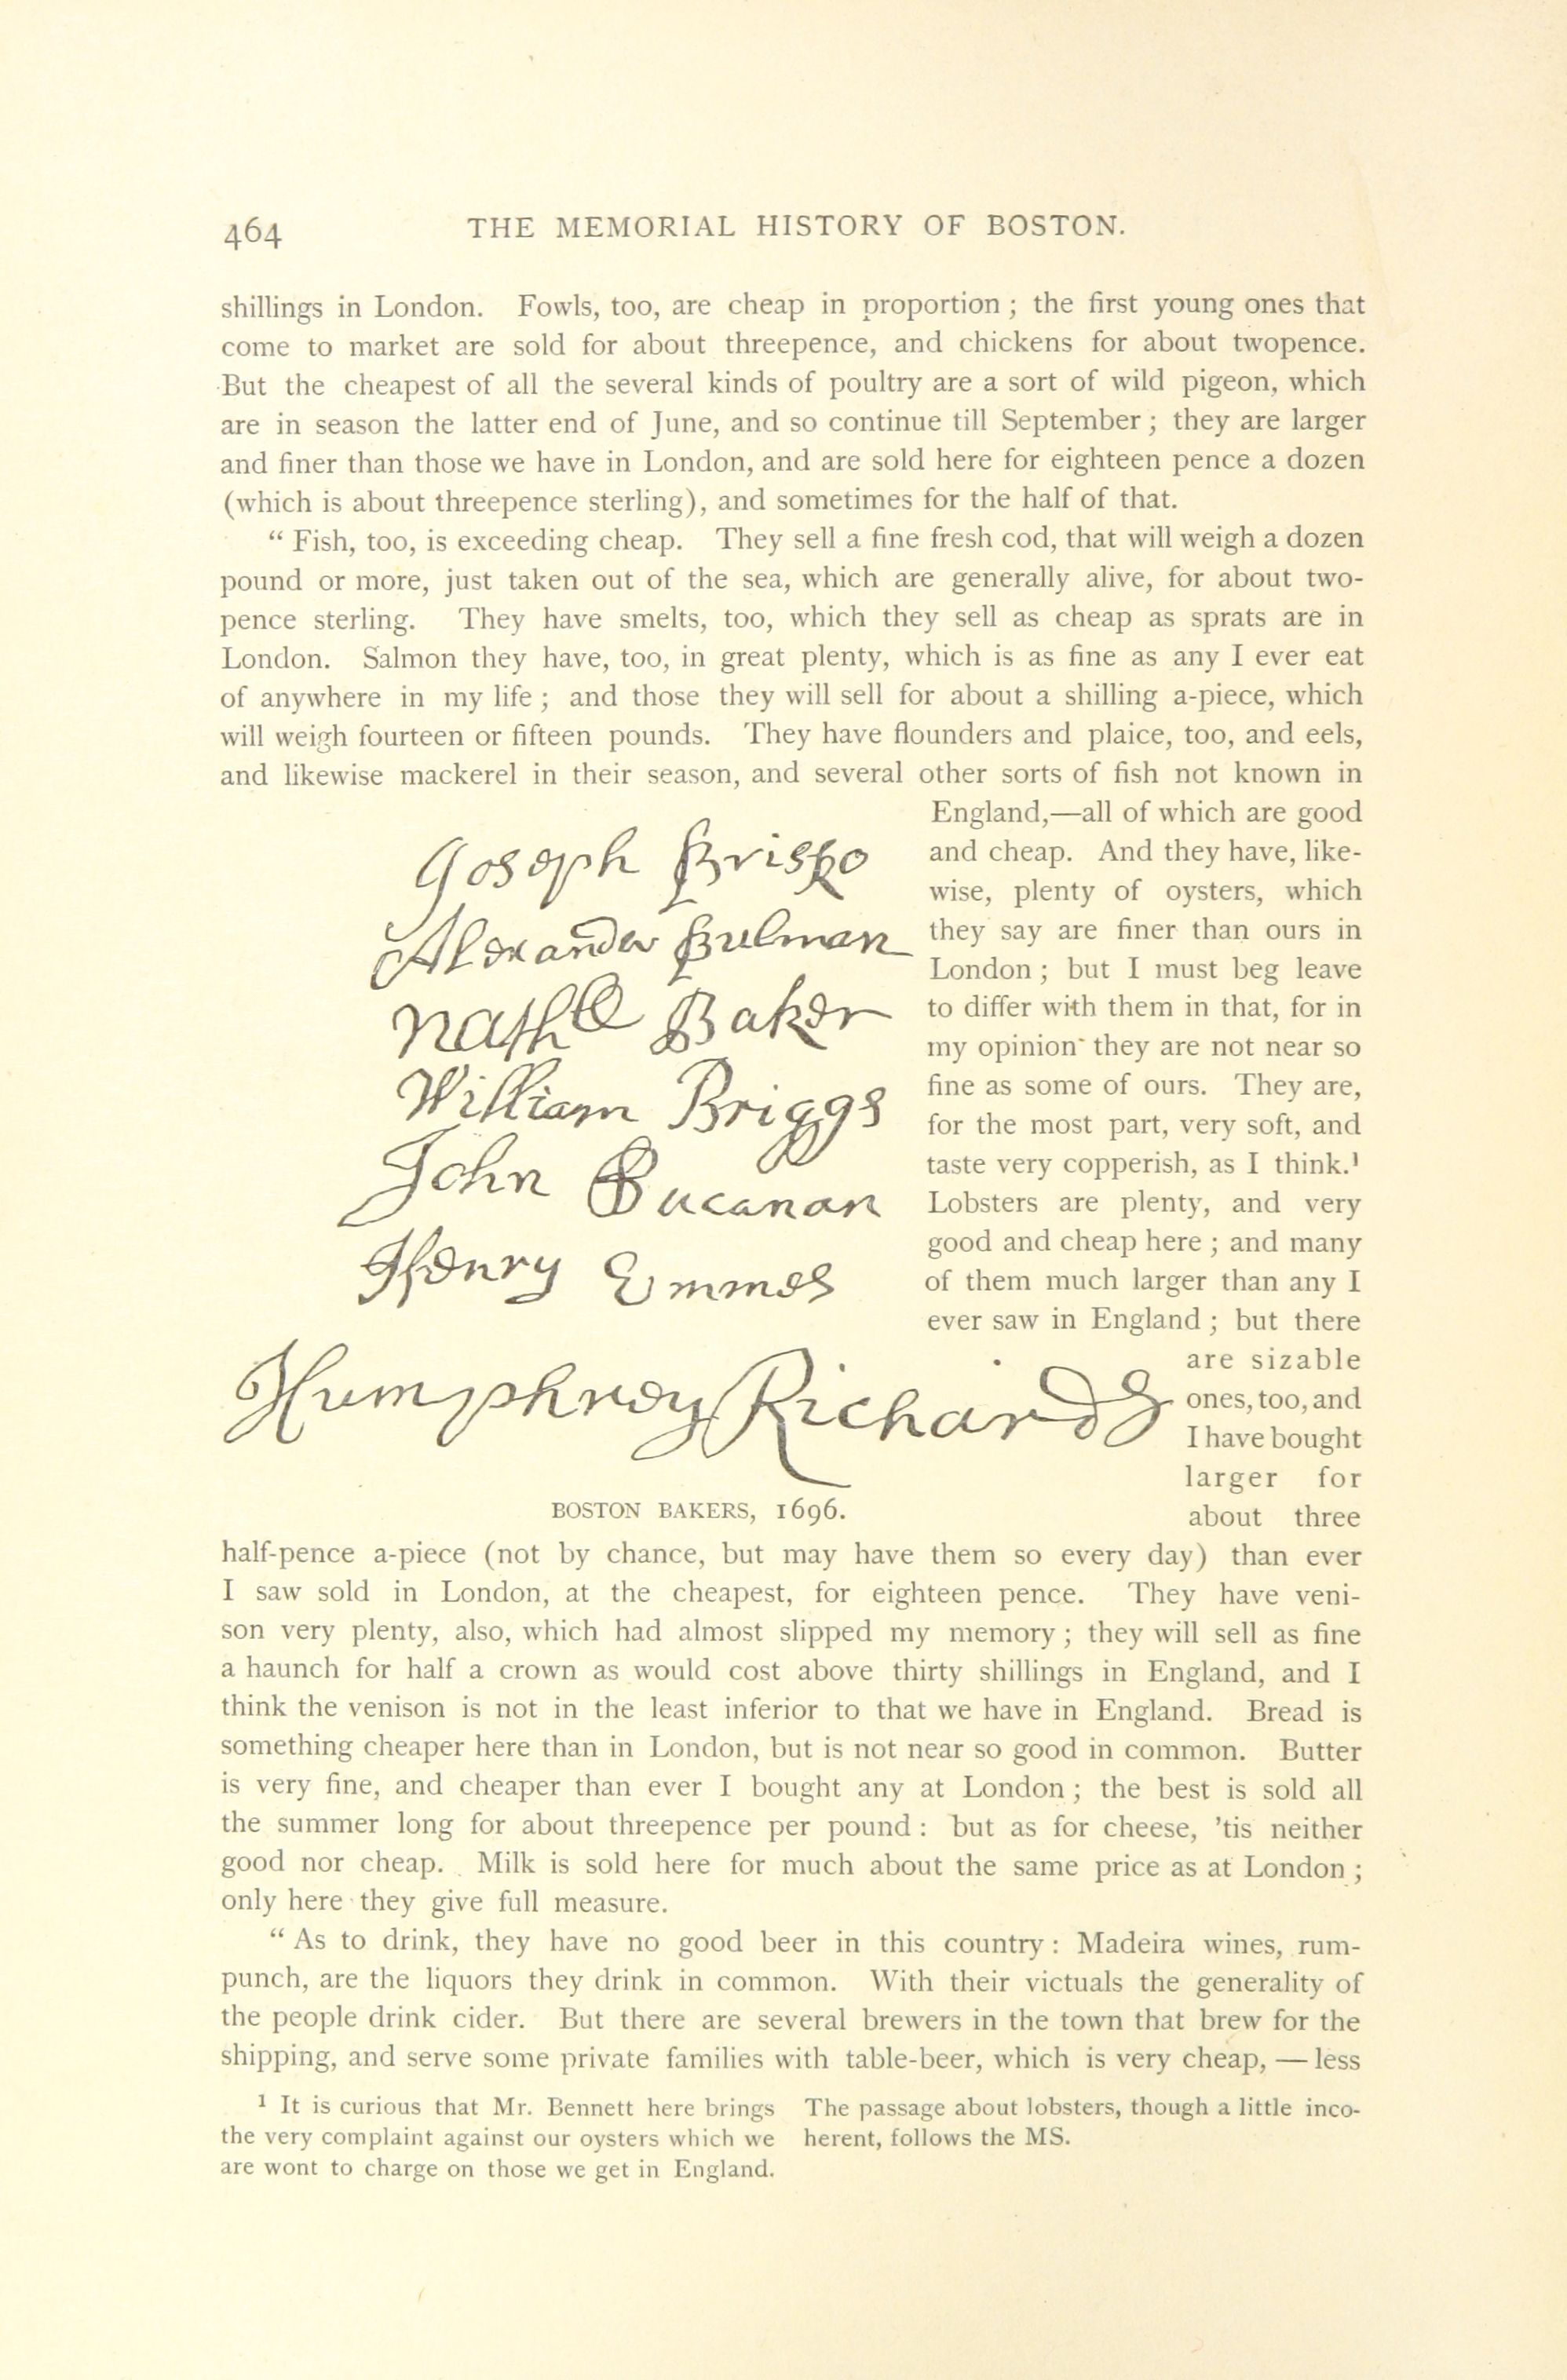 464 THE MEMORIAL HISTORY OF BOSTON.
shillings in London. Fowls, too, are cheap in proportion ; the first young ones that
come to market are sold for about threepence, and chickens for about twopence.
But the cheapest of all the several kinds of poultry are a sort of wild pigeon, which
are in season the latter end of June, and so continue till September ; they are larger
and finer than those we have in London, and are sold here for eighteen pence a dozen
(which is about threepence sterling), and sometimes for the half of that.
“ Fish, too, is exceeding cheap. They sell a fine fresh cod, that will weigh a dozen
pound or more, just taken out of the sea, which are generally alive, for about two-
pence sterling. They have smelts, too, which they sell as cheap as sprats are in
London. Salmon they have, too, in great plenty, which is as fine as any I ever eat
of anywhere in my life ; and those they will sell for about a shilling a-piece, which
will weigh fourteen or fifteen pounds. They have flounders and plaice, too, and eels,
and likewise mackerel in their season, and several other sorts of fish not known in
England,—all of which are good
and cheap. And they have, like-
wise, plenty of oysters, which
they say are finer than ours in
London ; but I must beg leave
to differ with them in that, for in
my opinion they are not near so
fine as some of ours. They are,
for the most part, very soft, and
taste very copperish, as I think.¹
Lobsters are plenty, and very
good and cheap here ; and many
of them much larger than any I
ever saw in England ; but there
are sizable
ones, too, and
I have bought
larger for
about three
Joseph Brisko
Alexander Bulman
Nathll Baker
William Briggs
John Bucanan
Henry Emmes
Humphrey Richards
BOSTON BAKERS, 1696.
half-pence a-piece (not by chance, but may have them so every day) than ever
I saw sold in London, at the cheapest, for eighteen pence. They have veni-
son very plenty, also, which had almost slipped my memory ; they will sell as fine
a haunch for half a crown as would cost above thirty shillings in England, and I
think the venison is not in the least inferior to that we have in England. Bread is
something cheaper here than in London, but is not near so good in common. Butter
is very fine, and cheaper than ever I bought any at London ; the best is sold all
the summer long for about threepence per pound : but as for cheese, ’tis neither
good nor cheap. Milk is sold here for much about the same price as at London ;
only here they give full measure.
“ As to drink, they have no good beer in this country : Madeira wines, rum-
punch, are the liquors they drink in common. With their victuals the generality of
the people drink cider. But there are several brewers in the town that brew for the
shipping, and serve some private families with table-beer, which is very cheap, — less
¹ It is curious that Mr. Bennett here brings
the very complaint against our oysters which we
are wont to charge on those we get in England.
The passage about lobsters, though a little inco-
herent, follows the MS.